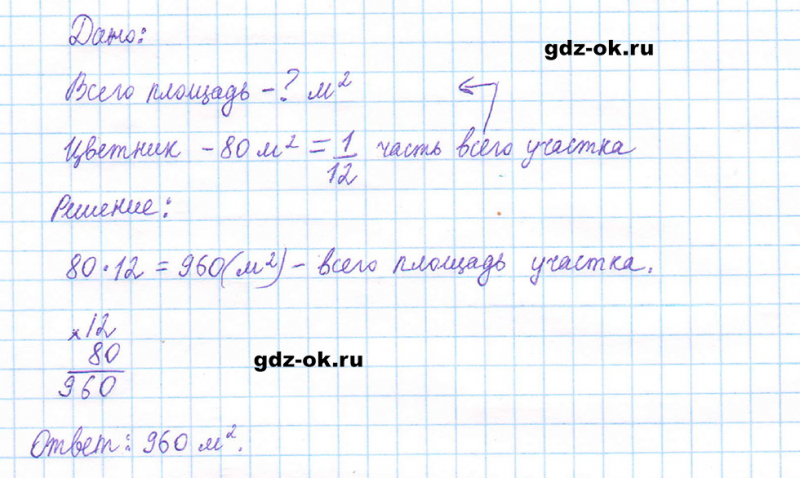 Дано:
gdz-ok.ru
Всего площадь - ? м²
Цветник - 80 м² = 1/12 часть всего участка
Решение:
80 · 12 = 960 (м²) - всего площадь участка.
× 12
80
960
gdz-ok.ru
Ответ: 960 м².